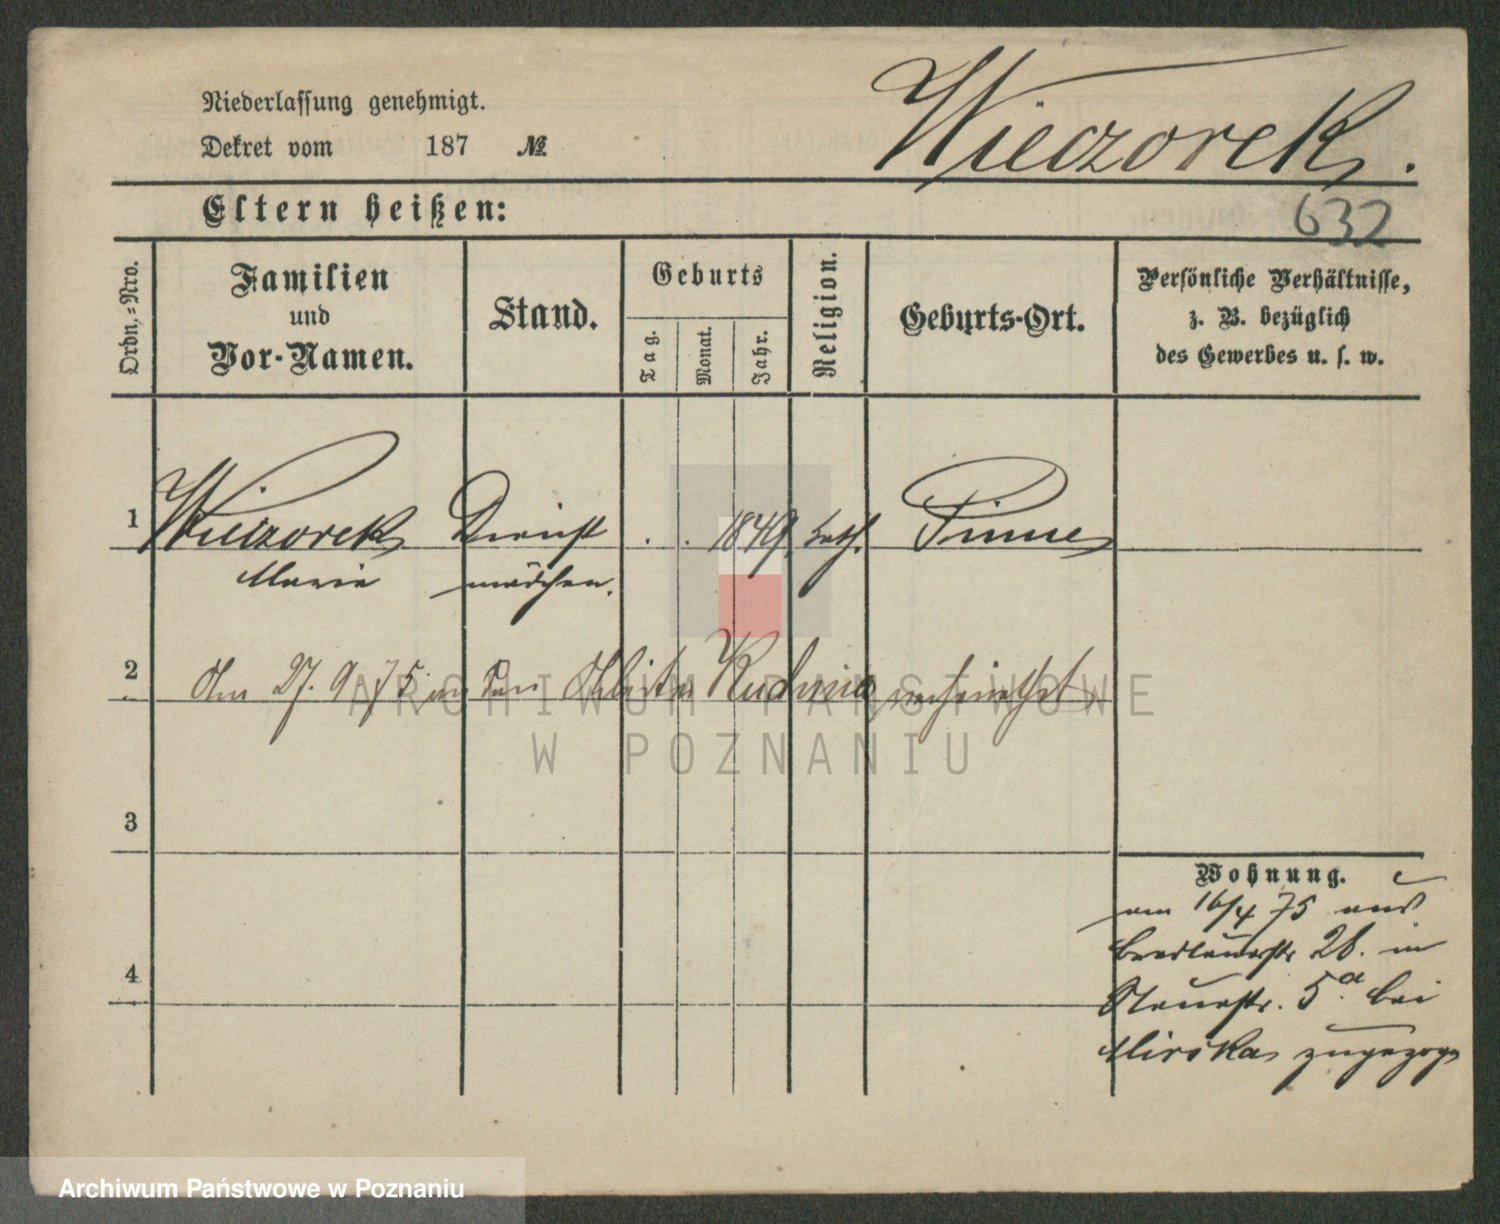 Niederlassung genehmigt.
Dekret vom 187 №
Wieczorek.
Eltern heißen:
632
Ordn.-Nro.
Familien
und
Vor-Namen.
Stand.
Geburts
Tag.
Monat.
Jahr.
Religion.
Geburts-Ort.
Persönliche Verhältnisse,
z. B. bezüglich
des Gewerbes u. s. w.
1 Wieczorek Dienst . . 1849. kath. Pinne
Marie mädchen.
2 Am 27. 9. 75 an den Arbeiter verheirathet
ARCHIWUM PAŃSTWOWE
W POZNANIU
3
Wohnung.
am 16/4 75 aus
Breslauerstr 28. in
4
5.a bei
Mirska zugezogen
Archiwum Państwowe w Poznaniu